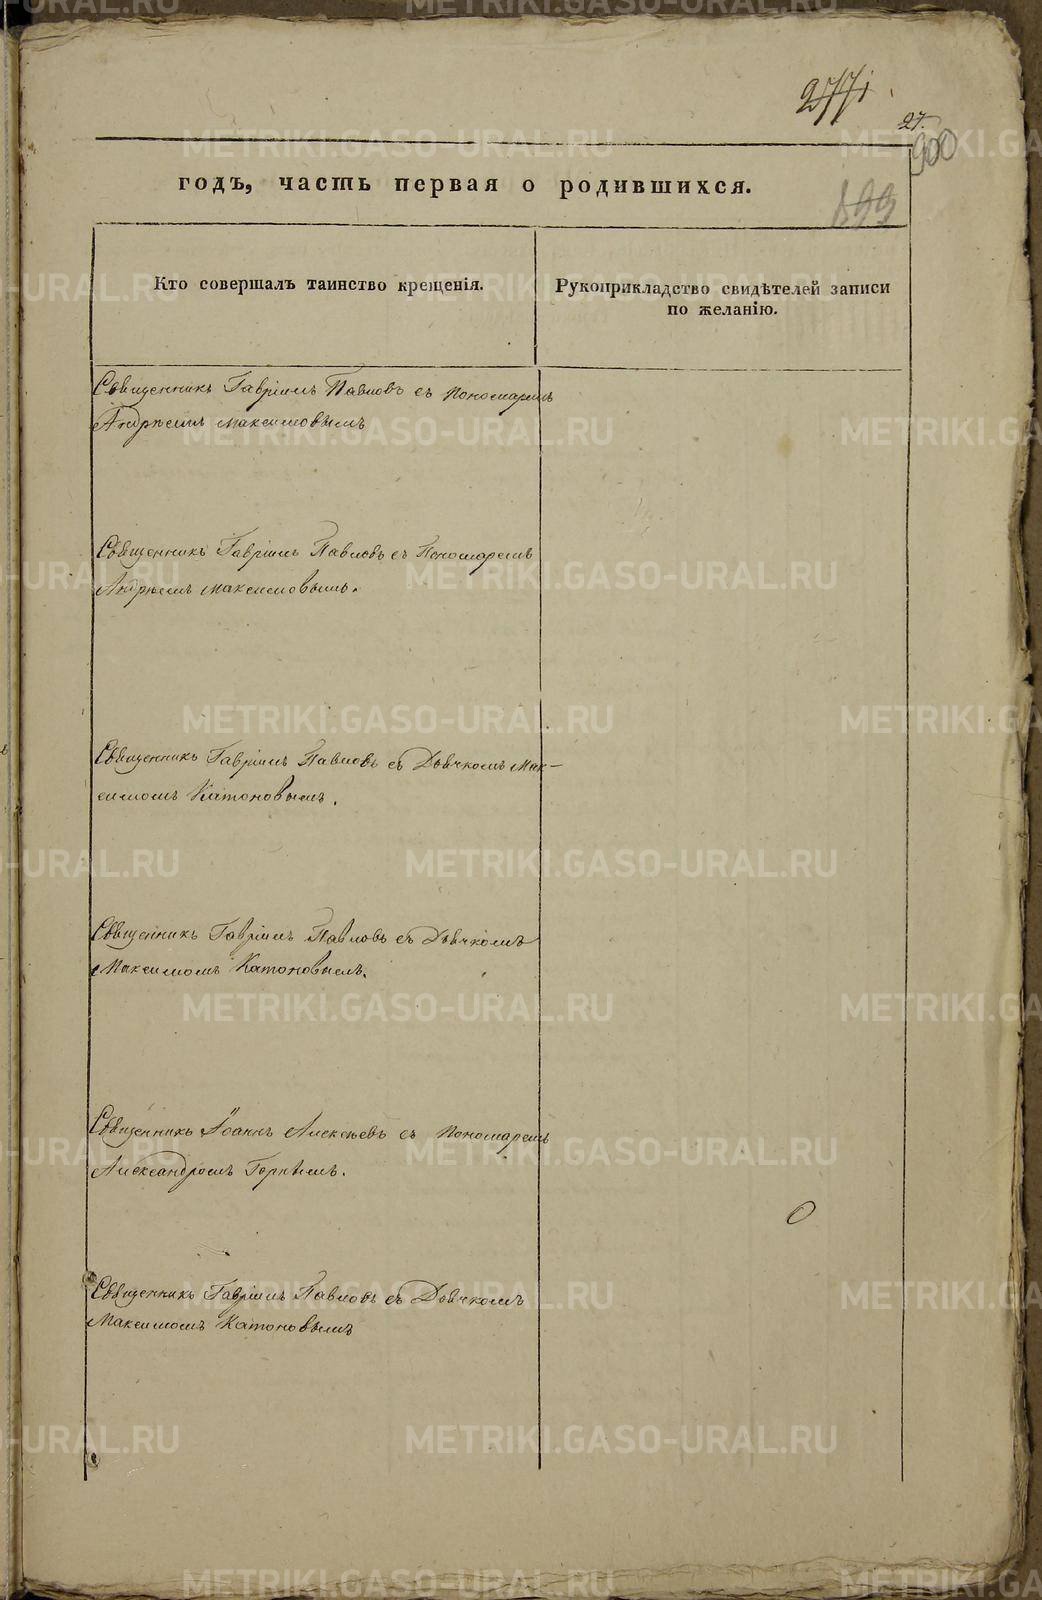 277
27.
900
899
годъ, часть первая о родившихся.
Кто совершалъ таинство крещенія.
Рукоприкладство свидѣтелей записи
по желанію.
Священникъ Гавріилъ Павловъ съ пономаремъ
Андреемъ Максимовымъ
Священникъ Гавріилъ Павловъ съ Пономаремъ
Андреемъ Максимовымъ.
Священникъ Гавріилъ Павловъ съ Дьячкомъ Мак-
симомъ Катоновымъ.
Священникъ Гавріилъ Павловъ съ Дьячкомъ
Максимомъ Катоновымъ.
Священникъ Іоаннъ Алексѣевъ съ пономаремъ
Александромъ
Священникъ Гавріилъ Павловъ съ Дьячкомъ
Максимомъ Катоновымъ
METRIKI.GASO-URAL.RU